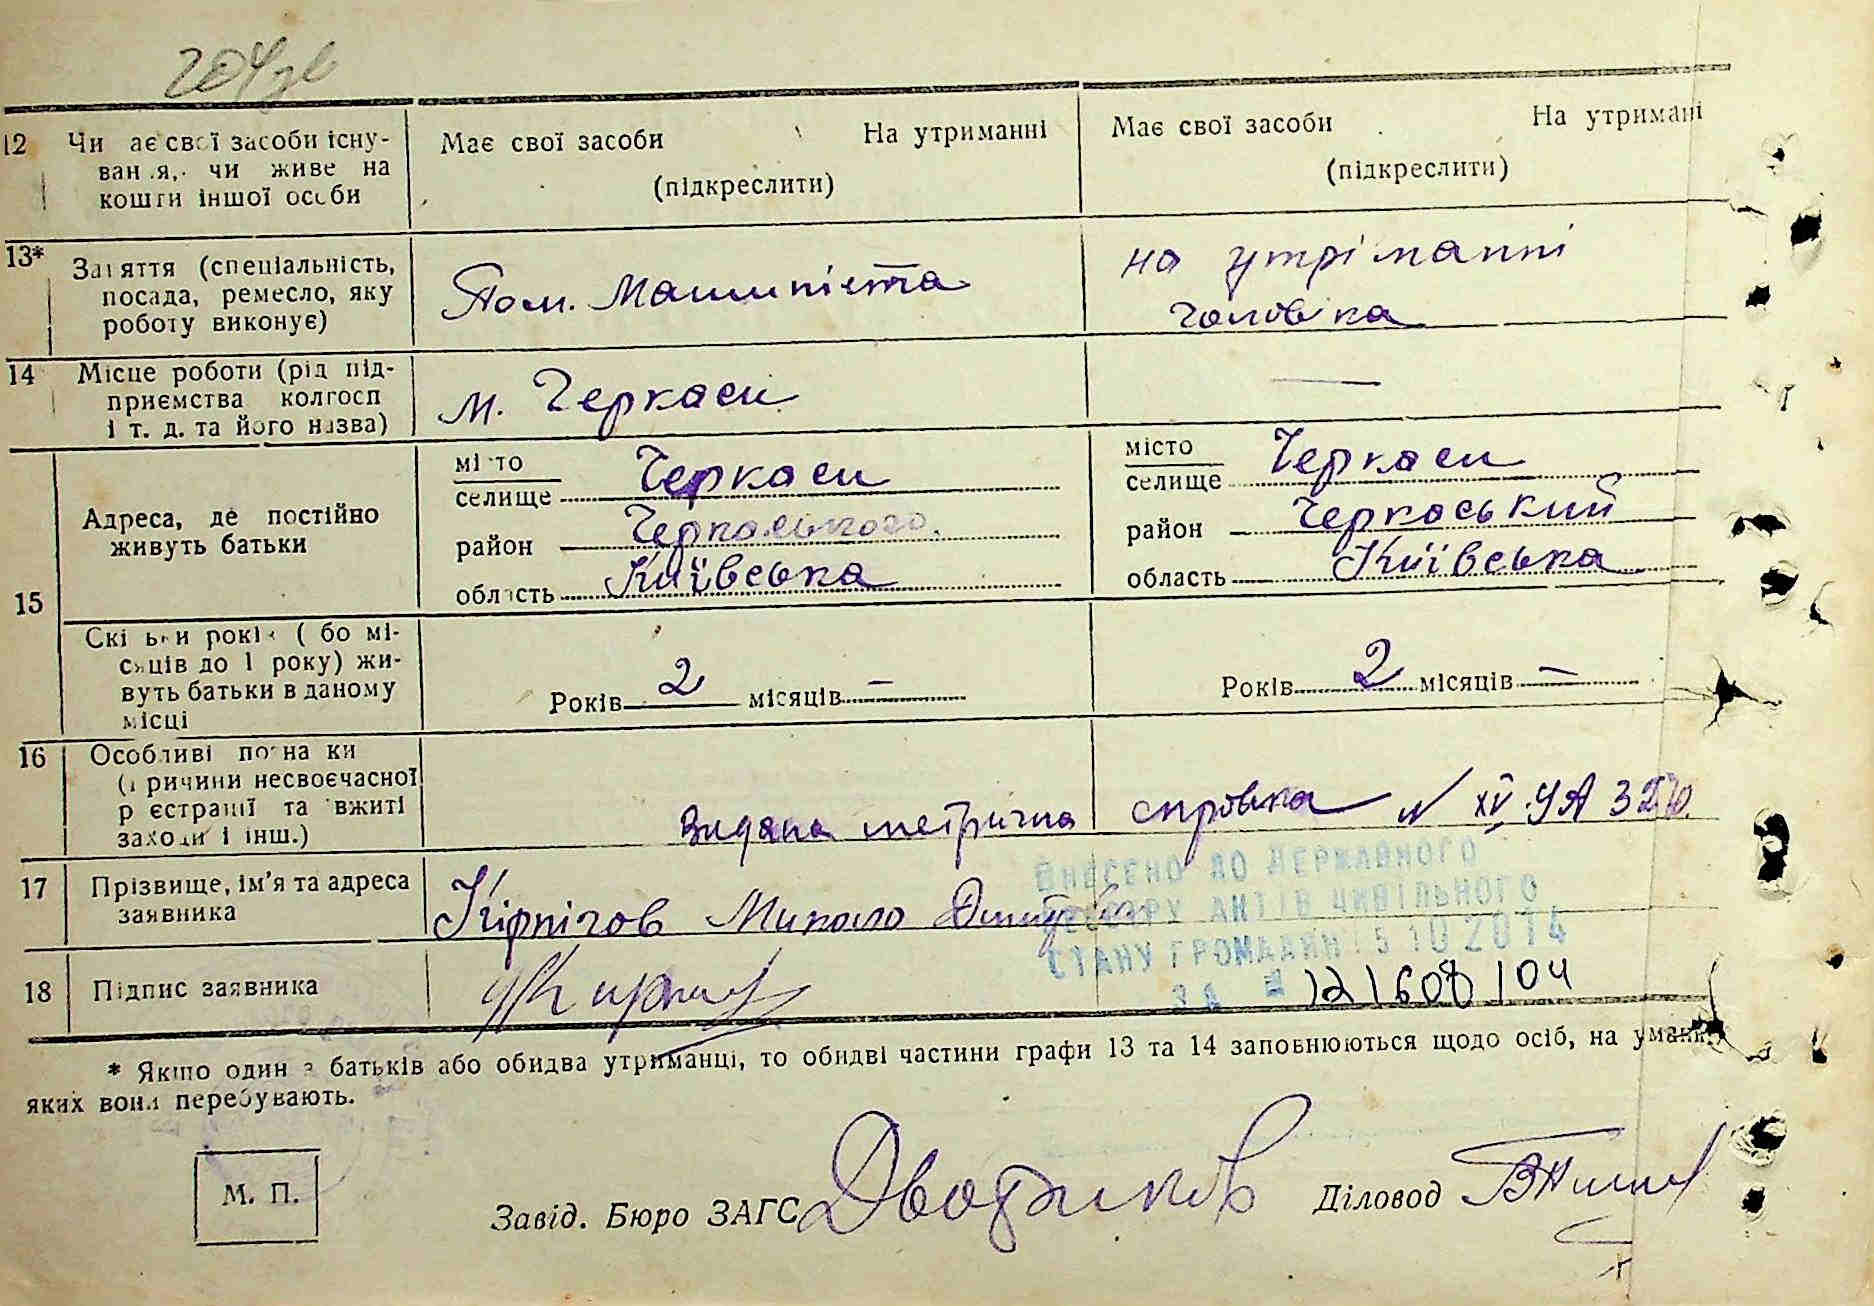 12 Чи ає свої засоби існу- Має свої засоби На утриманні Має свої засоби На утриманні
ван я, чи живе на (підкреслити) (підкреслити)
кошти іншої особи
13* Заняття (спеціальність, Пом. Машиніста на утріманні
посада, ремесло, яку чоловіка
роботу виконує)
14 Місце роботи (рід під- м. Черкаси —
приємства колгосп
і т. д. та його назва)
15 Адреса, де постійно живуть батьки
місто Черкаси місто Черкаси
селище селище
район Черкаського район Черкаський
область Київська область Київська
Скі ьки років ( бо мі-
сяців до 1 року) жи-
вуть батьки в даному Років 2 місяців — Років 2 місяців —
місці
16 Особливі позна ки
(причини несвоєчасної
р єстрації та вжиті Видана метрична справка N XV УА
заходи і інш.)
ВНЕСЕНО ДО ДЕРЖАВНОГО
РЕЄСТРУ АКТІВ ЦИВІЛЬНОГО
СТАНУ ГРОМАДЯН 15 10 2014
ЗА № 121608104
17 Прізвище, ім'я та адреса Кірпічов Микола
заявника
18 Підпис заявника
* Якшо один з батьків або обидва утриманці, то обидві частини графи 13 та 14 заповнюються щодо осіб, на уманні
яких вони перебувають.
М. П. Завід. Бюро ЗАГС Діловод